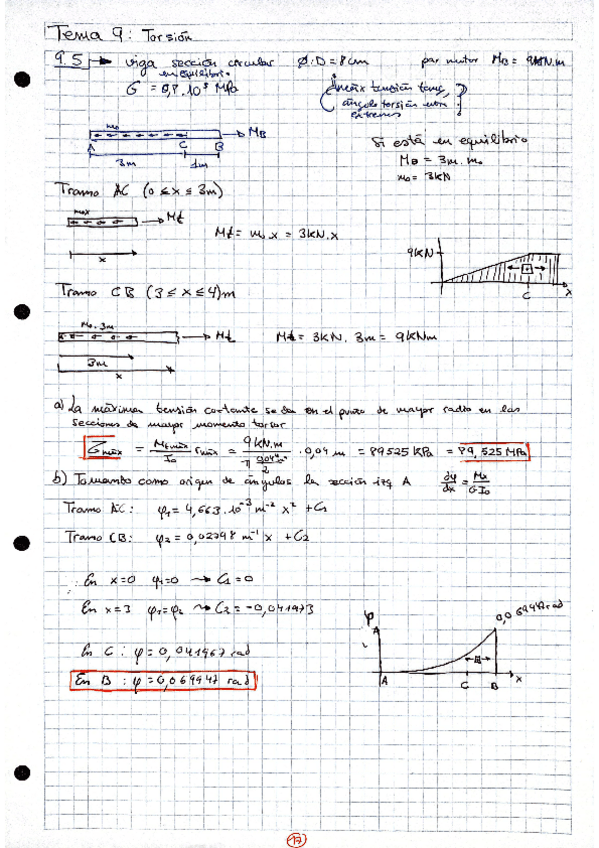 Tema 9: Torsión
9.5 → viga sección circular Ø: D = 8 cm par motor MB = 9 kN.m
en equilibrio
G = 0,8.10⁵ MPa
¿máx tensión tang, ángulo torsión extremos?
m₀
A C B → MB
3m 1m
Si está en equilibrio
MB = 3m.m₀
m₀ = 3kN
Tramo AC (0 ≤ x ≤ 3m)
m₀x → Mt
x
Mt = m₀.x = 3kN.x
9kN
C x
Tramo CB (3 ≤ x ≤ 4)m
m₀.3m
→ Mt
3m
x
Mt = 3kN.3m = 9kNm
a) La máxima tensión cortante se da en el punto de mayor radio en las
secciones de mayor momento torsor
τmáx = Mtmáx/I₀ rmáx = 9kN.m/(π 0,04⁴/2) . 0,04 m = 89525 kPa = 89,525 MPa
b) Tomando como origen de ángulos la sección izq A dφ/dx = Mx/GI₀
Tramo AC: φ₁ = 4,663.10⁻³ m⁻² x² + C₁
Tramo CB: φ₂ = 0,02798 m⁻¹ x + C₂
En x=0 φ₁=0 → C₁=0
En x=3 φ₁=φ₂ → C₂=-0,041973
En C: φ = 0,041967 rad
En B: φ = 0,069947 rad
φ
0,069947 rad
A C B x
17